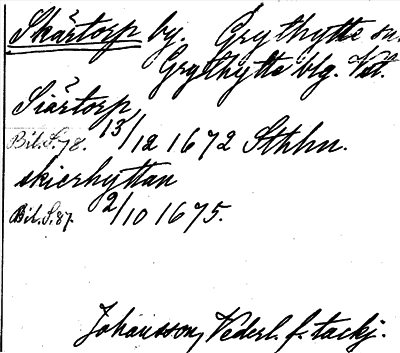 Skärtorp by. Grythytte sn.
Grythytte blg. Vst.
Siärtorp
Bil. S. 78. 13/12 1672 Sthhn.
skierhyttan
Bil. S. 87. 2/10 1675.
Johansson, Vederl. f. tackj.